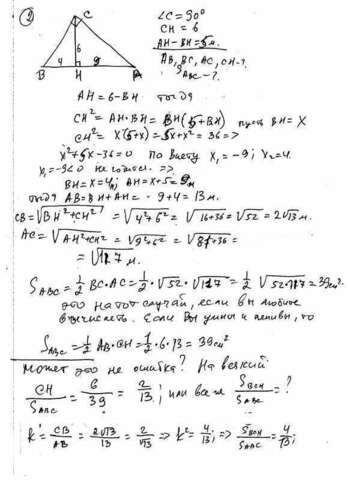 ②
C
6
4
9
B
H
A
∠C = 90°
CH = 6
AH - BH = 5 м.
AB, BC, AC, CH - ?
S ABC - ?
AH = 6 - BH тогда
CH² = AH · BH = BH(5 + BH) пусть BH = X
CH² = X(5+x) = 5x + x² = 36 =>
x² + 5x - 36 = 0 По Виету X₁ = -9; X₂ = 4.
X₁ = -9 < 0 не годится. =>
BH = X = 4 м; AH = X + 5 = 9 м
тогда AB = BH + AH = 9 + 4 = 13 м.
CB = √BH² + CH² = √4² + 6² = √16 + 36 = √52 = 2√13 м.
AC = √AH² + CH² = √9² + 6² = √81 + 36 =
= √117 м.
S ABC = 1/2 BC · AC = 1/2 · √52 · √117 = 1/2 √52·117 = 39 см².
это на тот случай, если вы любите
вычислять. Если Вы умны и ленивы, то
S ABC = 1/2 AB · CH = 1/2 · 6 · 13 = 39 см²
Может это не ошибка? На всякий:
CH/S ABC = 6/39 = 2/13; или все же S BCH/S ABC = ?
k = CB/AB = 2√13/13 = 2/√13 => k² = 4/13; => S BCH/S ABC = 4/13;